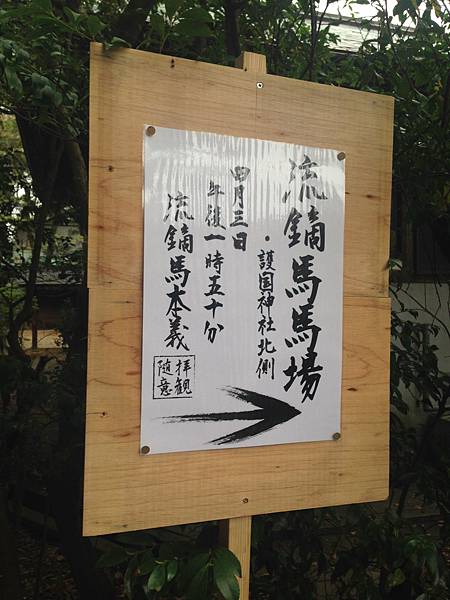 流鏑馬馬場
・護国神社北側
四月三日
午後一時五十分
流鏑馬本義
拝観
随意